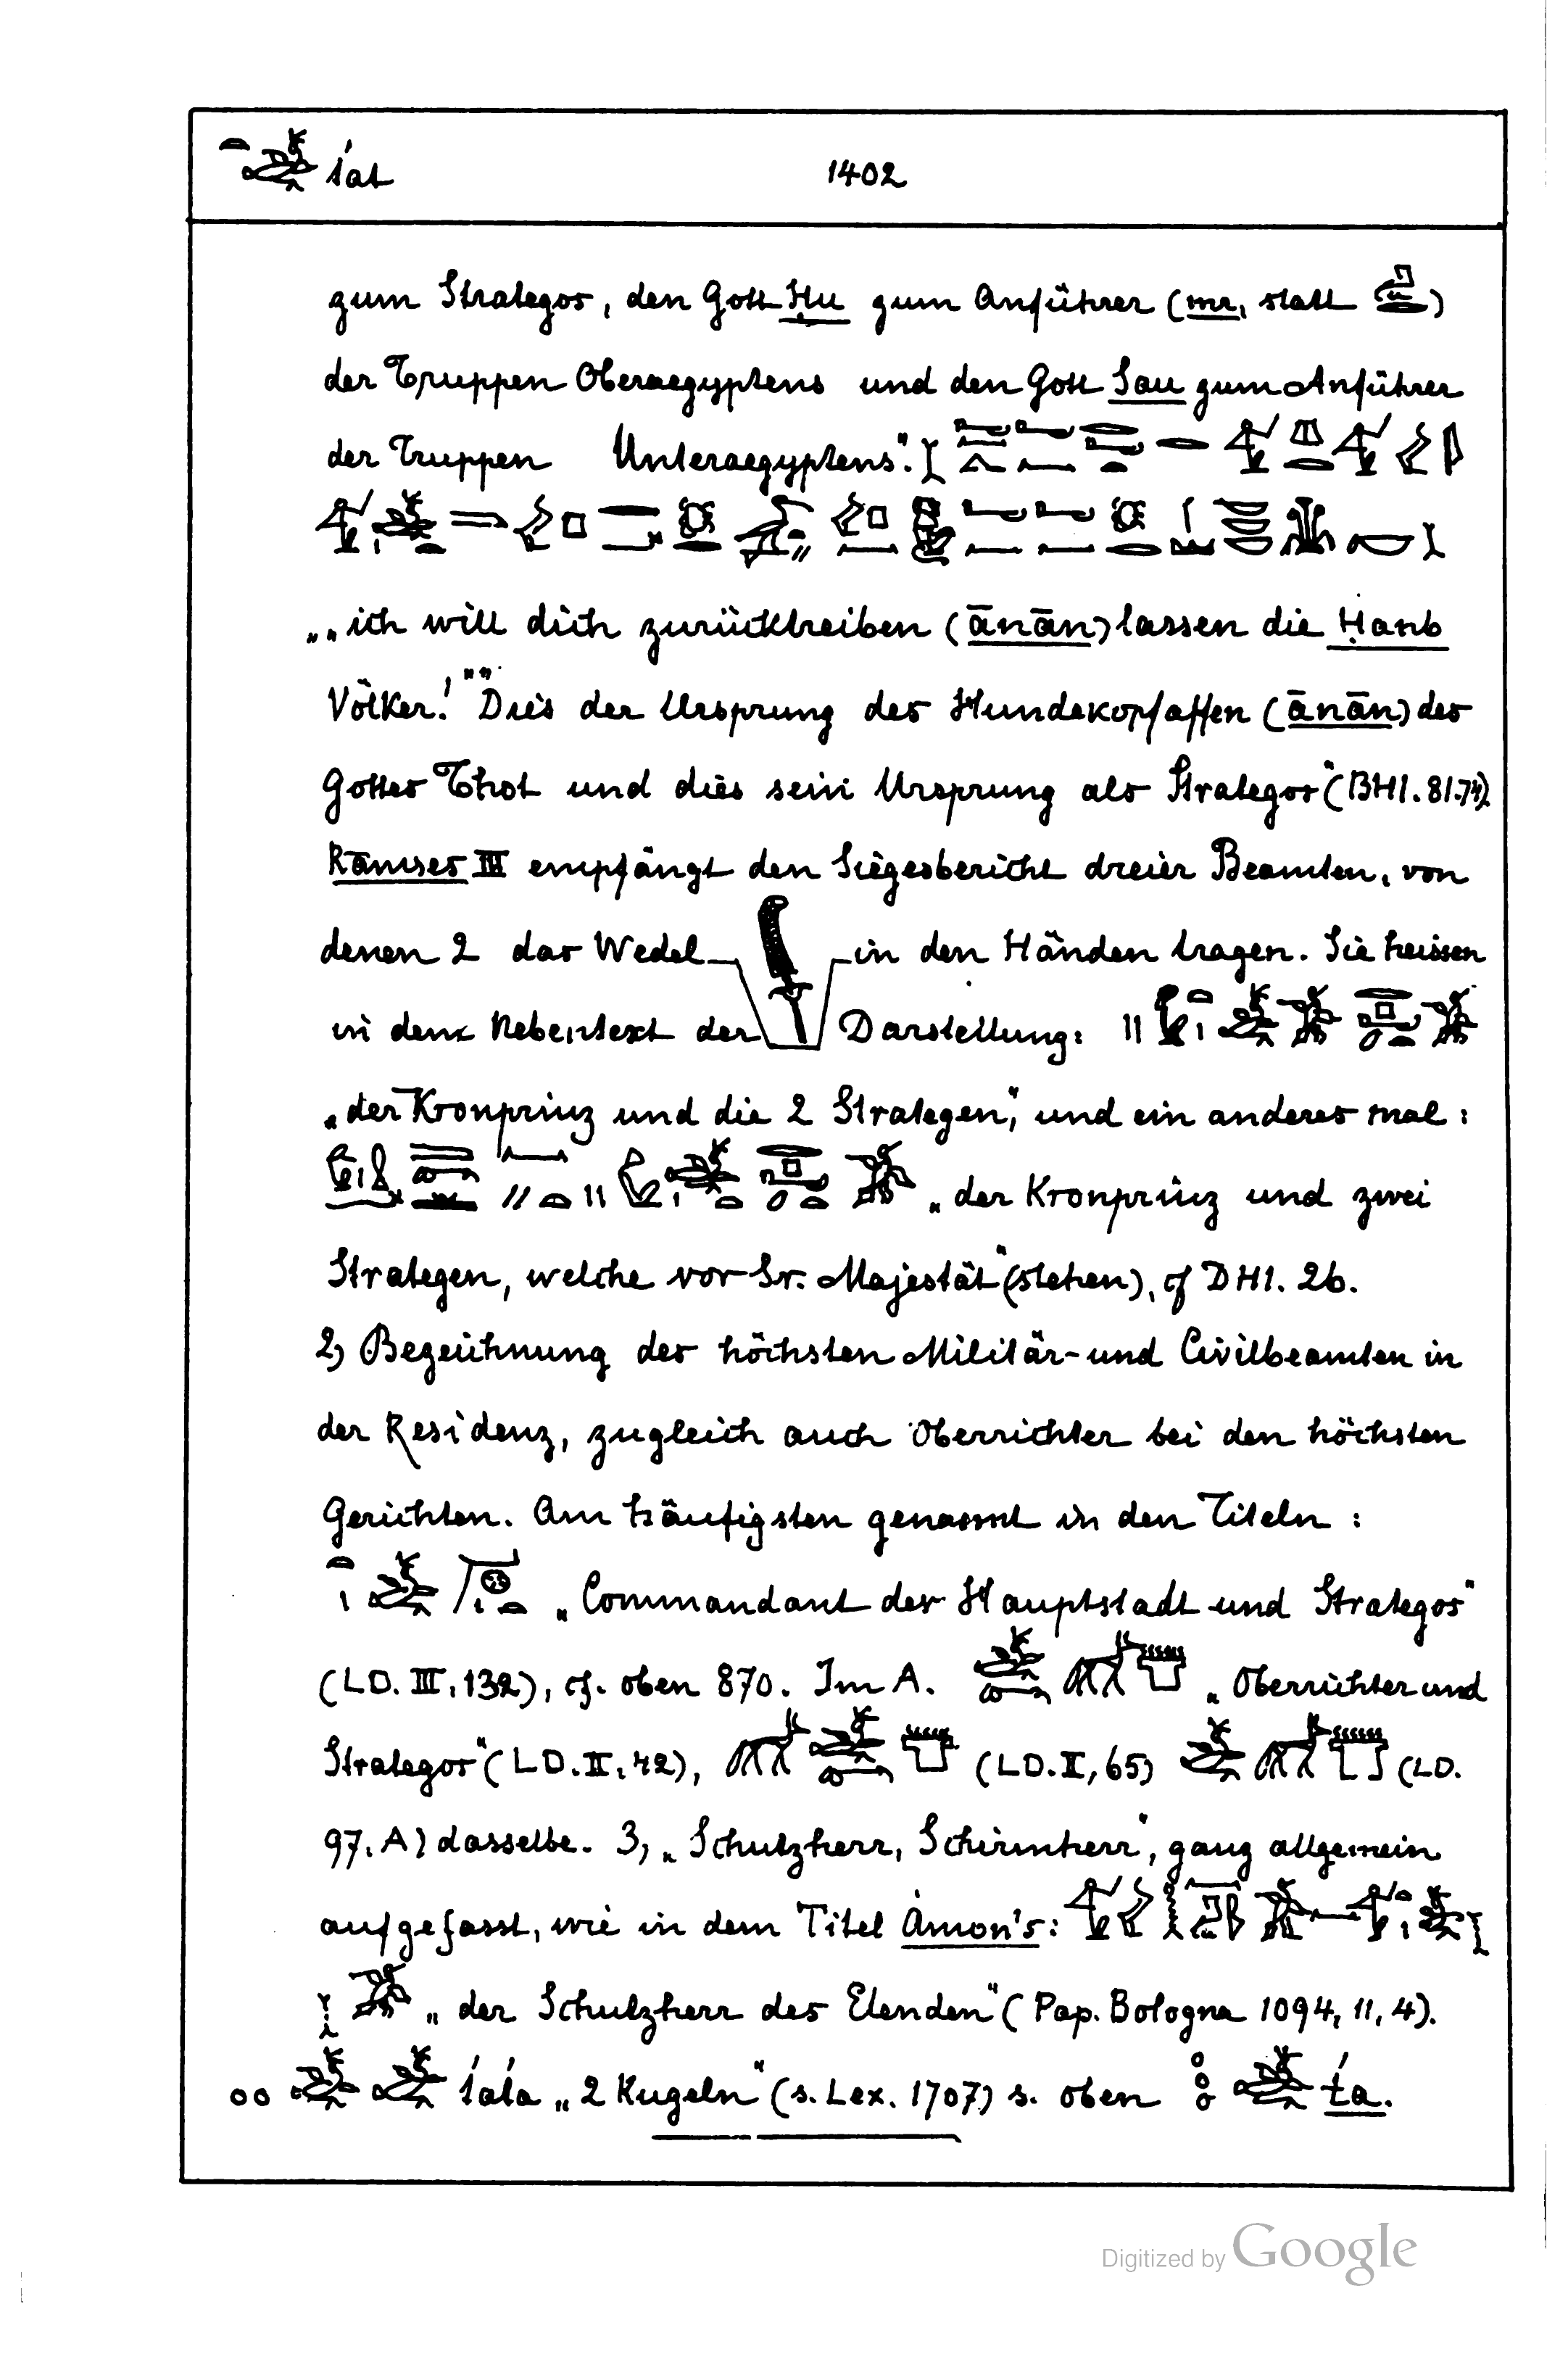 t́at 1402
zum Strategos, den Gott Ḥu zum Anführer (mr, statt )
der Truppen Oberaegyptens und den Gott Sau zum Anführer
der Truppen Unteraegyptens".
„„ich will dich zurücktreiben (ānān) lassen die Ḥanb
Völker!"" Dies der Ursprung des Hundekopfaffen (ānān) des
Gottes Thot und dies sein Ursprung als Strategos" (BHI. 81.74).
Rāmses III empfängt den Siegesbericht dreier Beamten, von
denen 2 das Wedel in den Händen tragen. Sie heissen
in dem Nebentext der Darstellung:
„der Kronprinz und die 2 Strategen", und ein anderes mal:
„der Kronprinz und zwei
Strategen, welche vor Sr. Majestät" (stehen), cf DHI. 26.
2) Bezeichnung des höchsten Militär- und Civilbeamten in
der Residenz, zugleich auch Oberrichter bei den höchsten
Gerichten. Am häufigsten genannt in den Titeln:
„Commandant der Hauptstadt und Strategos"
(LD. III, 132), cf. oben 870. Im A. „Oberrichter und
Strategos" (LD. II, 42), (LD. II, 65) (LD.
97, A) dasselbe. 3) „Schutzherr, Schirmherr", ganz allgemein
aufgefasst, wie in dem Titel Ȧmon's:
„der Schutzherr des Elenden" (Pap. Bologna 1094, 11, 4).
t́at́a „2 Kugeln" (s. Lex. 1707) s. oben t́a.
Digitized by Google